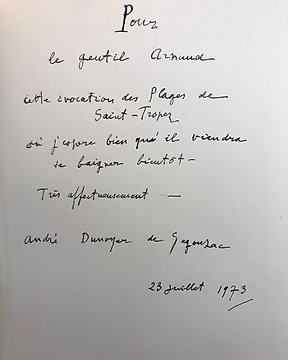 Pour
le gentil Arnaud
cette évocation des Plages de
Saint-Tropez
où j'espère bien qu'il viendra
se baigner bientôt -
Très affectueusement —
André Dunoyer de Segonzac
23 juillet 1973